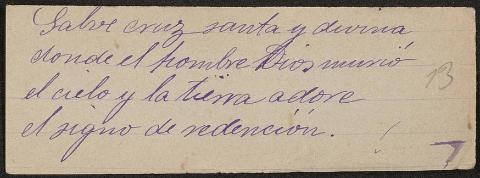 Salve cruz santa y divina
donde el hombre Dios murió
el cielo y la tierra adore
el signo de redención.
13